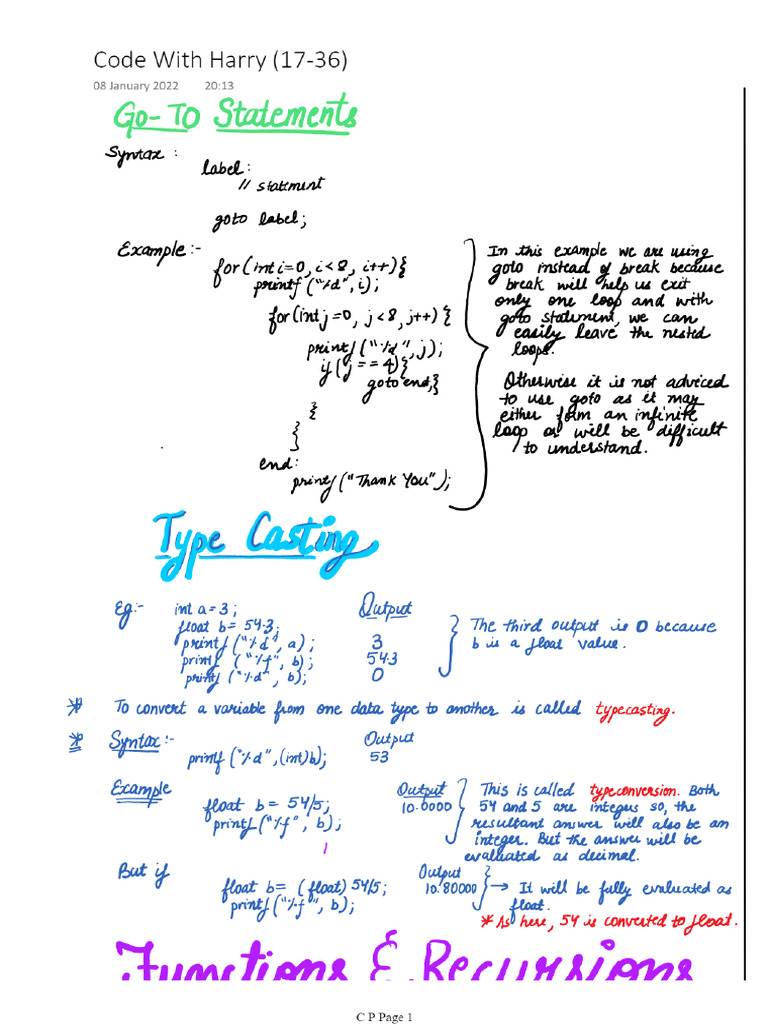 Code With Harry (17-36)
08 January 2022 20:13
Go-To Statements
Syntax :
label:
// statement
goto label;
Example :-
for (int i=0, i<8, i++) {
printf ("%d", i);
for (int j=0, j<8, j++) {
printf ("%d", j);
if (j == 4) {
goto end;}
}
}
end:
printf ("Thank You");
In this example we are using
goto instead of break because
break will help us exit
only one loop and with
goto statement, we can
easily leave the nested
loops.
Otherwise it is not adviced
to use goto as it may
either form an infinite
loop or will be difficult
to understand.
Type Casting
Eg:- int a = 3; Output
float b = 54.3;
printf ("%d", a); 3
printf ("%f", b); 54.3
printf ("%d", b); 0
The third output is 0 because
b is a float value.
* To convert a variable from one data type to another is called typecasting.
* Syntax :- Output
printf ("%d", (int)b); 53
Example Output
float b = 54/5; 10.0000
printf ("%f", b);
This is called typeconversion. Both
54 and 5 are integers so, the
resultant answer will also be an
integer. But the answer will be
evaluated as decimal.
But if Output
float b = (float) 54/5; 10.80000 → It will be fully evaluated as
printf ("%f", b); float.
* As here, 54 is converted to float.
Functions & Recursions
C P Page 1